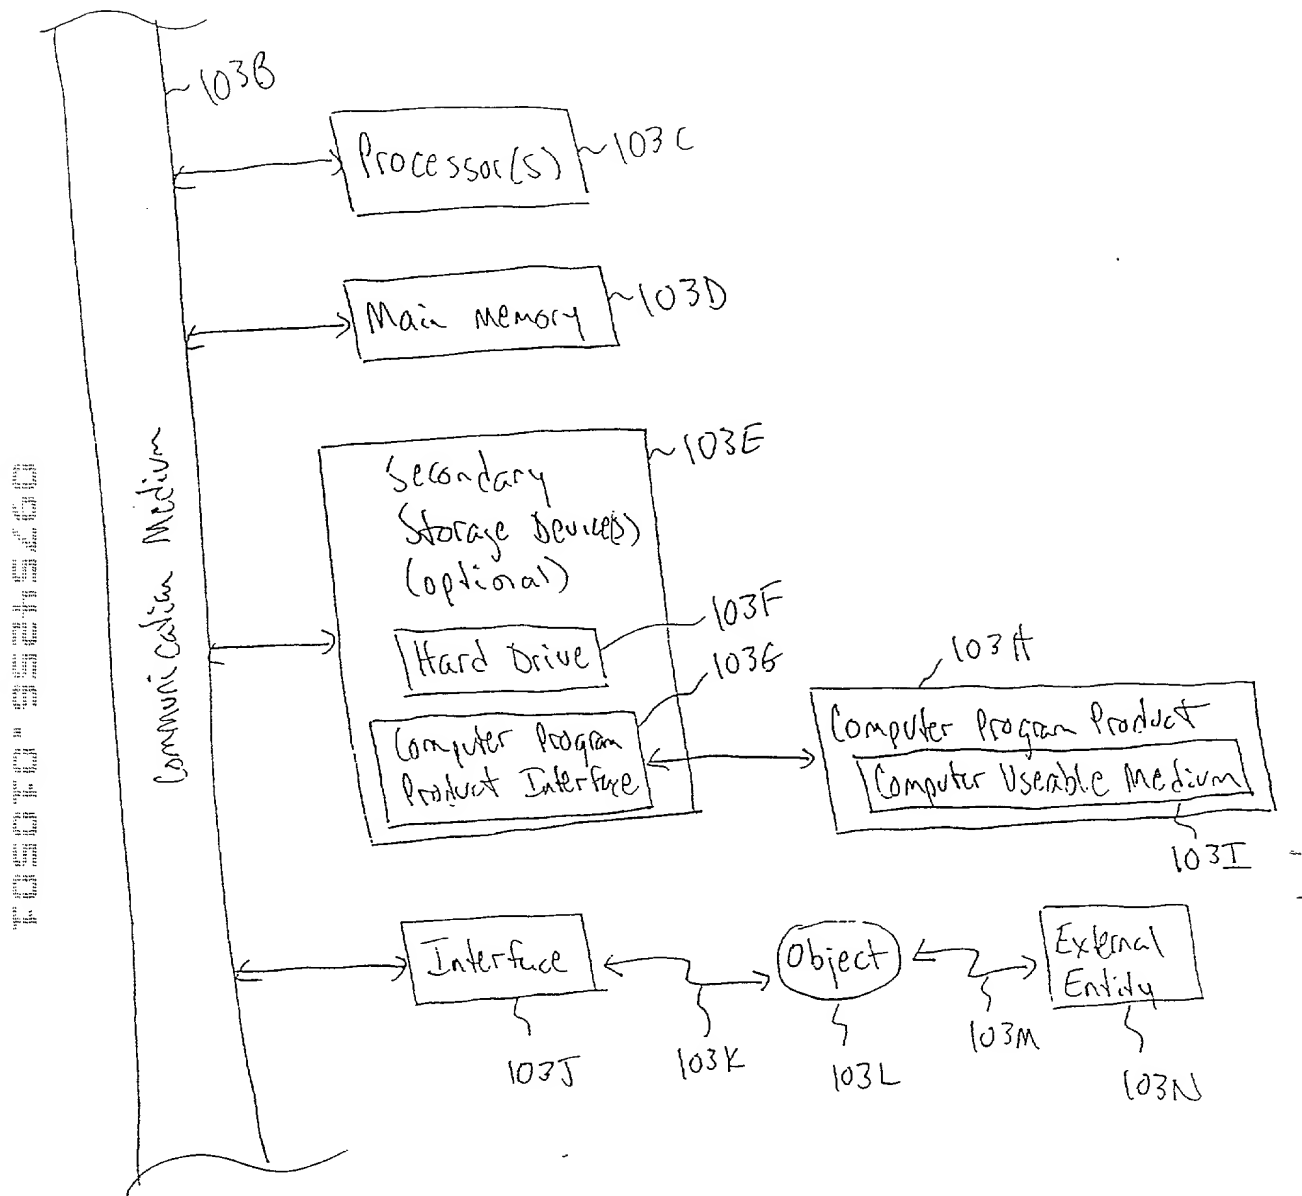 103B
Processor(s)
103C
Main Memory
103D
103E
Secondary
Storage Device(s)
(optional)
103F
Hard Drive
103G
Computer Program
Product Interface
103H
Computer Program Product
Computer Useable Medium
103I
Communication Medium
Interface
Object
External
Entity
103J
103K
103L
103M
103N
09754255.010501